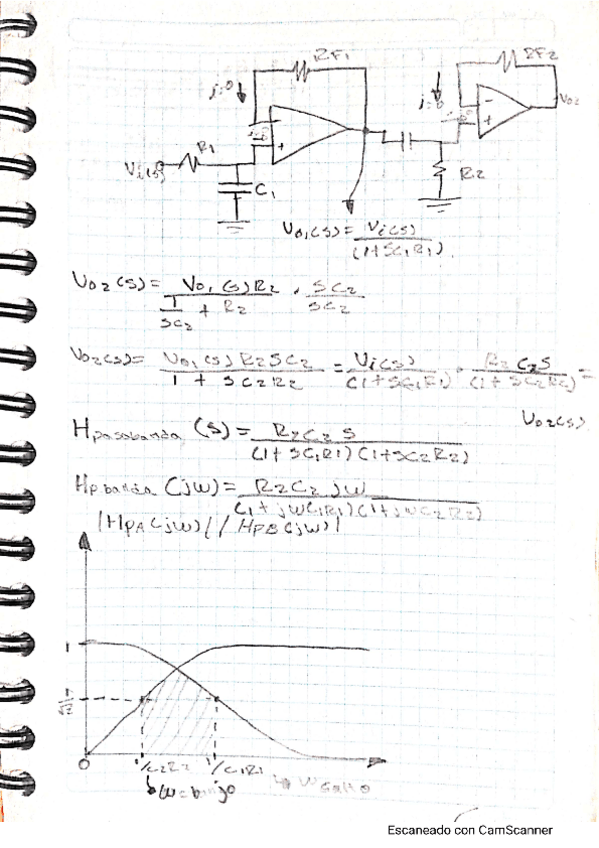 RF1
RF2
i=0
i=0
Vo2
R1
Vi(s)
C1
R2
Vo1(s) = Vi(s) / (1+SC1R1)
Vo2(s) = Vo1(s)R2 / (1/SC2 + R2) . SC2/SC2
Vo2(s) = Vo1(s) R2SC2 / (1 + SC2R2) = Vi(s) / (1+SC1R1) . R2C2S / (1+SC2R2) =
Vo2(s)
Hpasabanda (s) = R2C2 S / (1+SC1R1)(1+SC2R2)
Hpbanda (jw) = R2C2 jw / (1+jwC1R1)(1+jwC2R2)
|HpA(jw)| / |HpB(jw)|
1
0
1/C2R2
1/C1R1
w=bajo
Escaneado con CamScanner